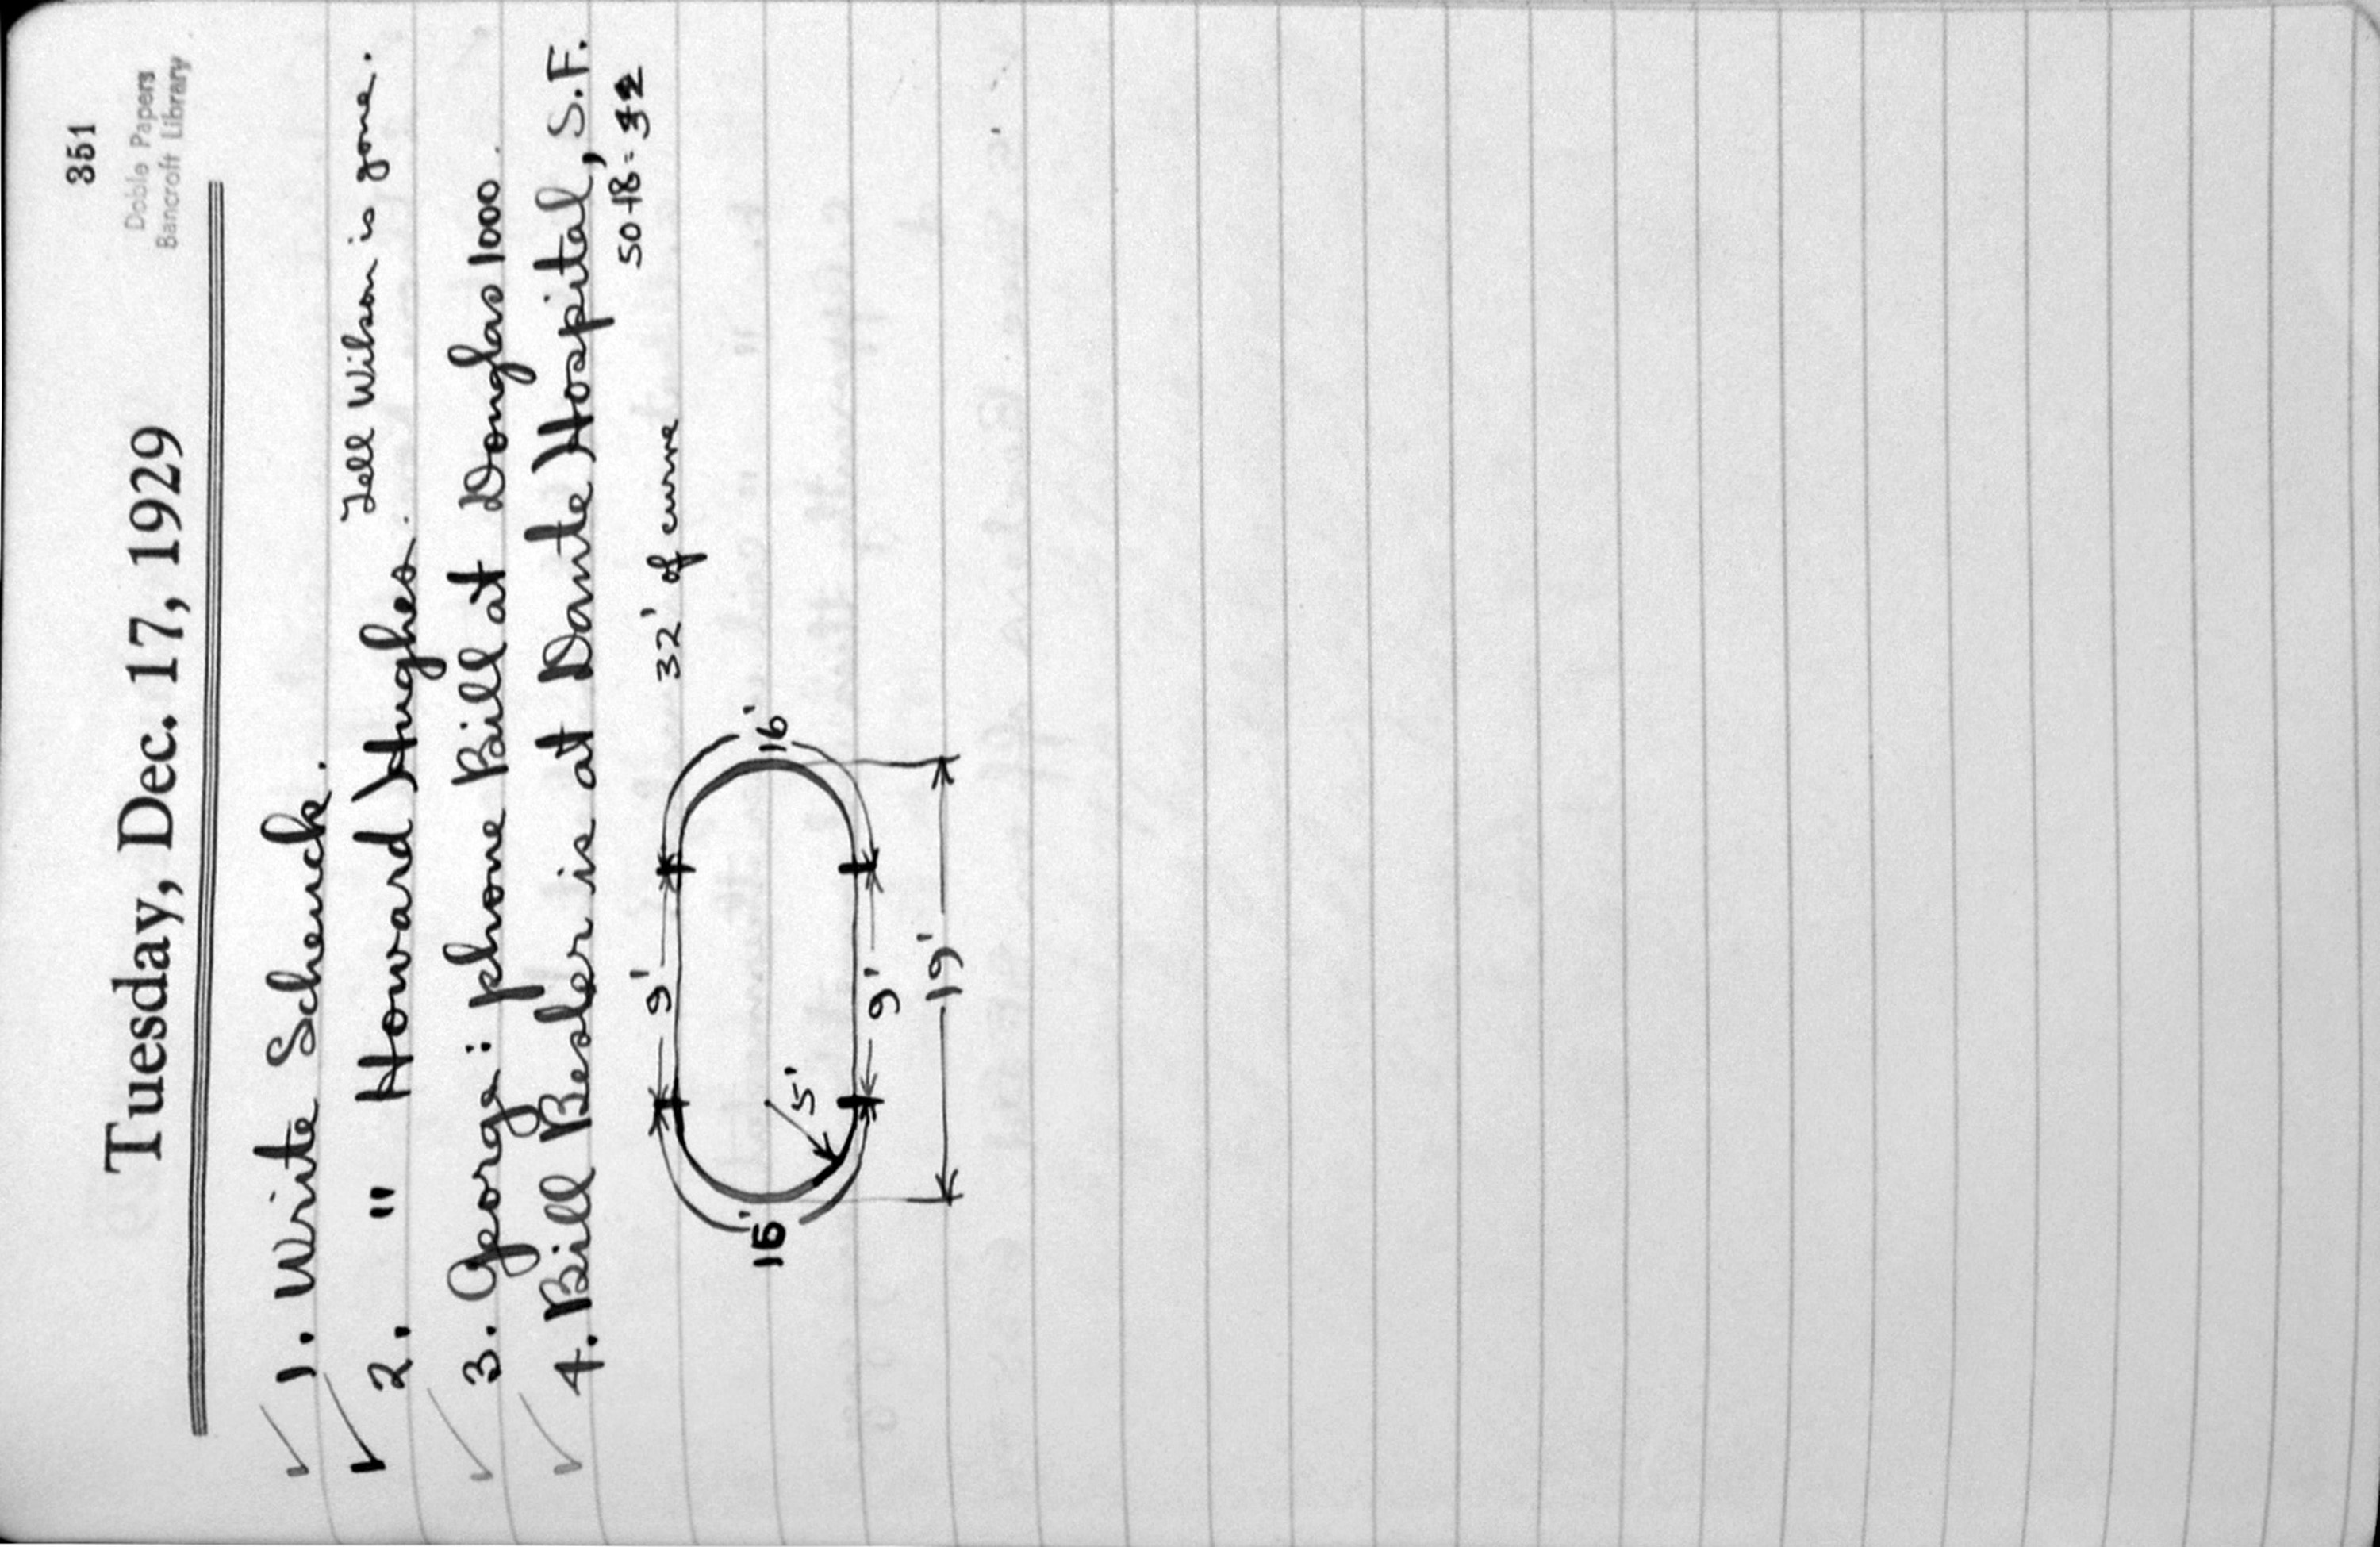 351
Doble Papers
Bancroft Library
Tuesday, Dec. 17, 1929
1. Write Schenck.
2. " Howard Hughes. Tell Wilson is gone.
3. George: phone Bill at Douglas 1000.
4. Bill Besler is at Dante Hospital, S.F.
50 18 = 32
32' of curve
9'
16' 5' 16'
9'
19'